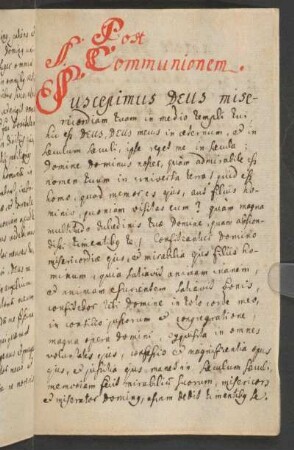 Post
Communionem.
Suscepimus DEUS mise-
ricordiam tuam in medio templi tui
hic est DEUS, DEUS meus in æternum, et in
sæculum sæculi, ipse reget me in sæcula:
domine dominus noster, quam admirabile est
nomen tuum in universa terra, quid est
homo, quod memor es ejus, aut filius ho-
minis, quoniam visitas eum? quam magna
multitudo dulcedinis tuæ domine, quam abscon-
disti timentibus te, Confiteantur domino
misericordiæ ejus, et mirabilia ejus filiis ho-
minum, quia satiavit animam inanem,
et animam esurientem satiavit bonis,
confitebor tibi domine in toto corde meo,
in consilio justorum et congregatione
magna opera domini exquisita in omnes
voluntates ejus, confessio et magnificentia opus
ejus, et justitia ejus manet in sæculum sæculi,
memoriam fecit mirabilium suorum, misericors
et miserator dominus, escam dedit timentibus se.